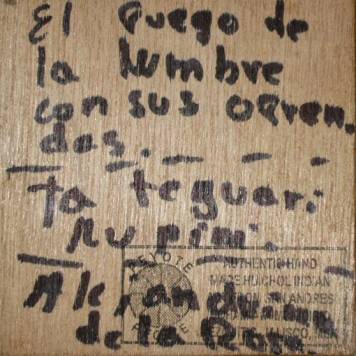 El Fuego de
la Numbre
con sus ofren.
das.
Ta teguari
Nu pini.
de la
PEYOTE
PEOPLE
AUTHENTIC HAND
MADE HUICHOL INDIAN
SAN ANDRES
JALISCO, MEX